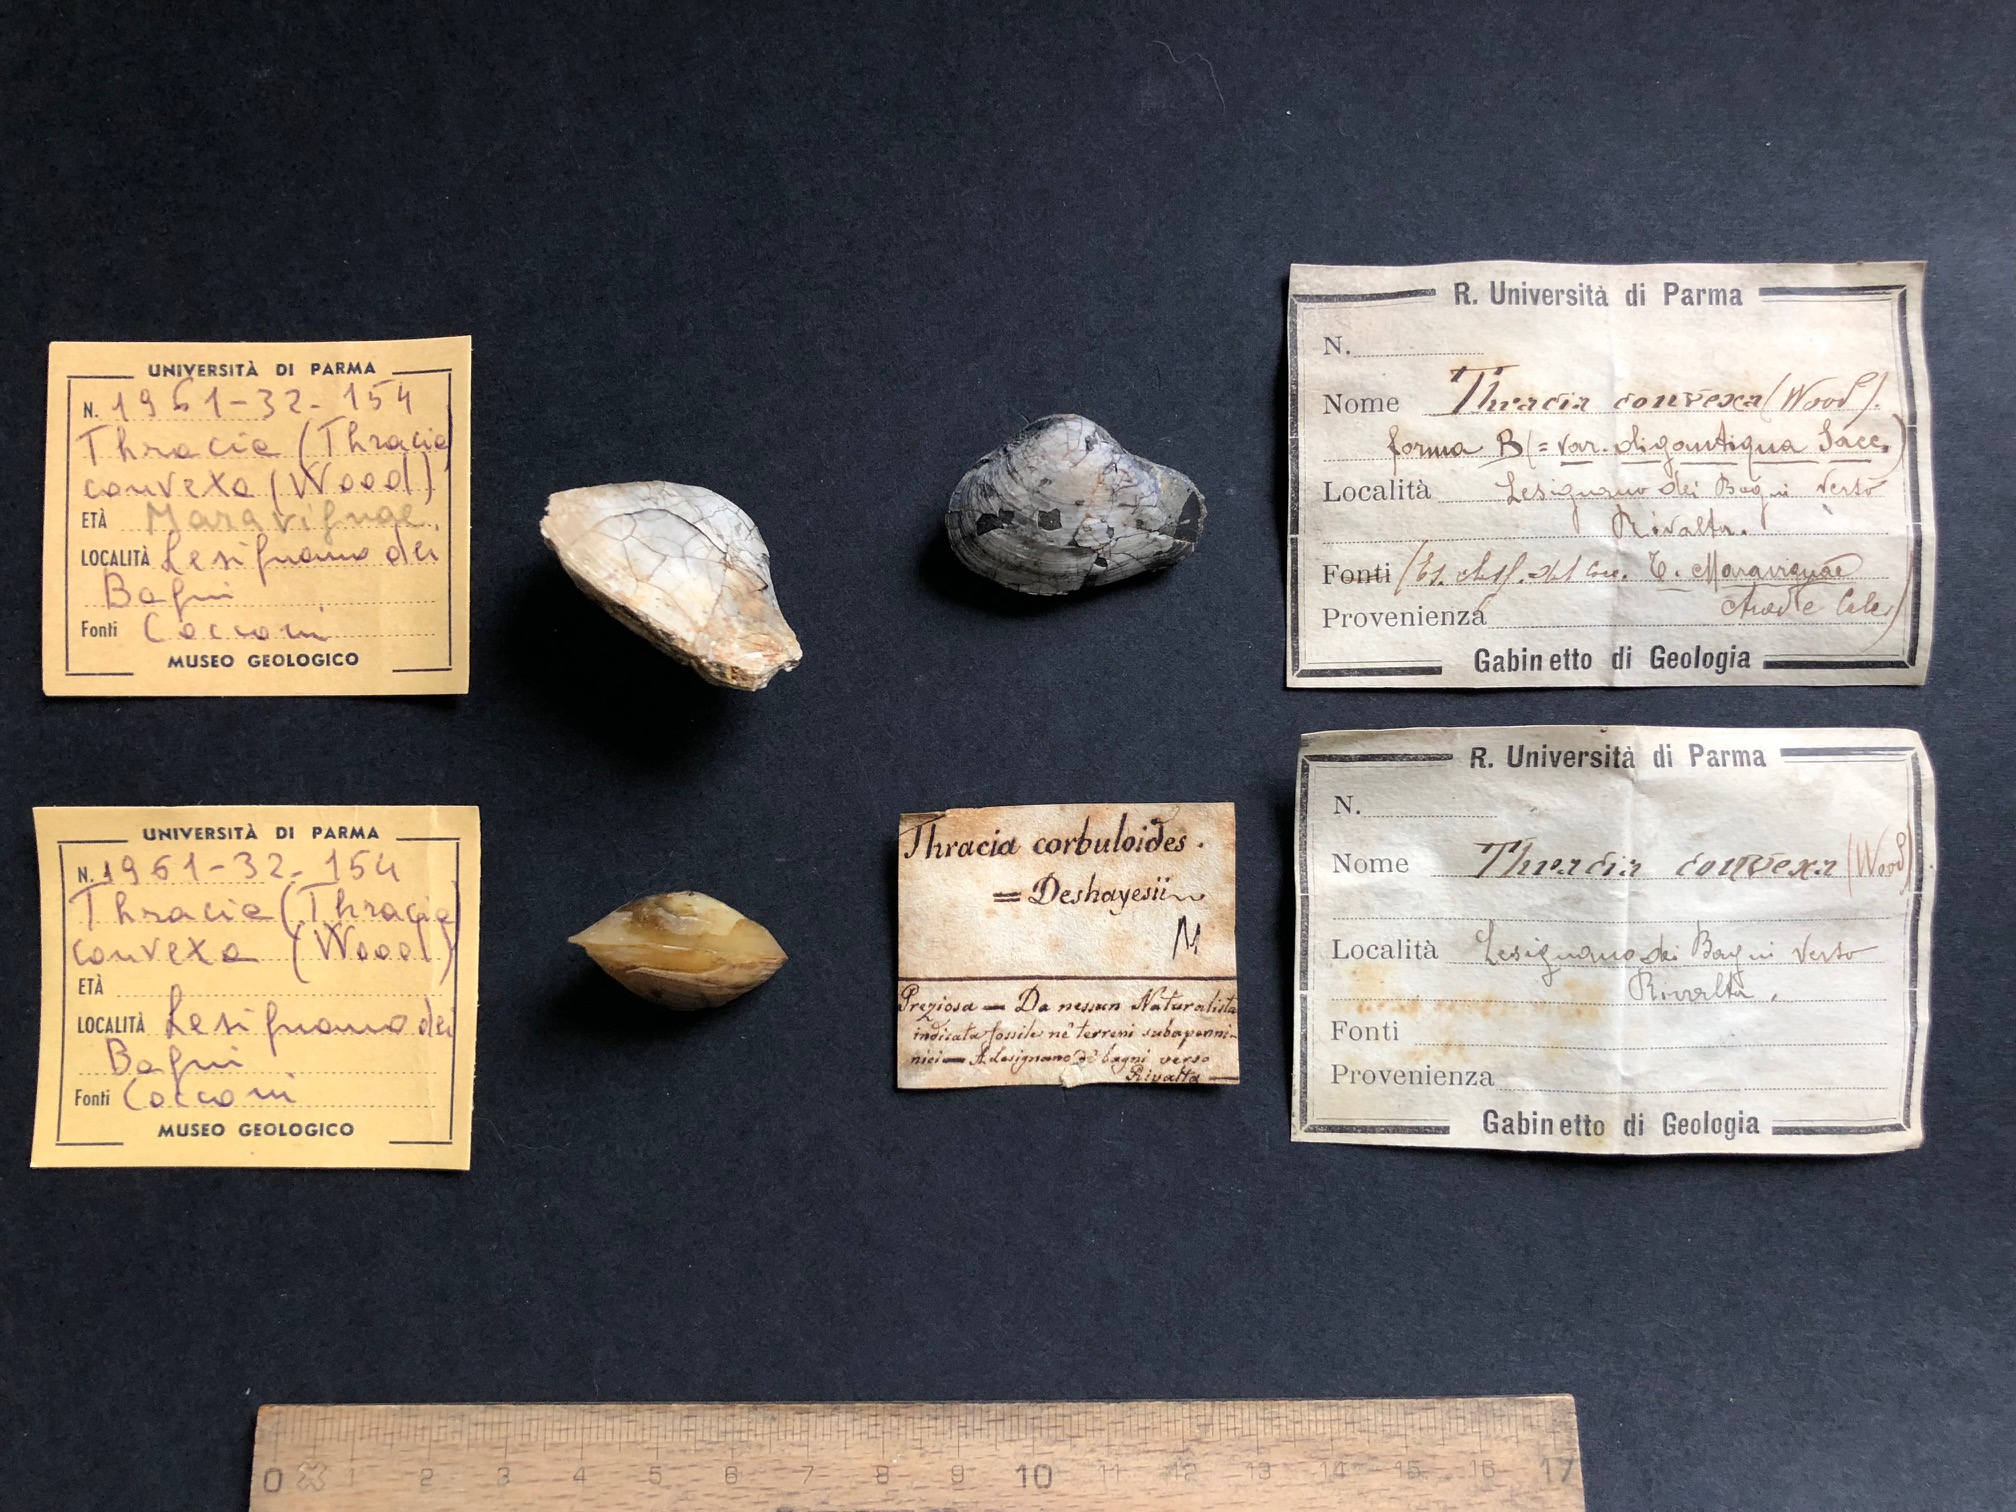 UNIVERSITÀ DI PARMA
N. 1961-32-154
Thracia (Thracia)
convexa (Wood)
ETÀ Maravignae.
LOCALITÀ Lesignano dei
Bagni
Fonti Cocconi
MUSEO GEOLOGICO
UNIVERSITÀ DI PARMA
N. 1961-32-154
Thracia (Thracia)
convexa (Wood)
ETÀ
LOCALITÀ Lesignano dei
Bagni
Fonti Cocconi
MUSEO GEOLOGICO
Thracia corbuloides.
= Deshayesii
M
Preziosa — Da nessun Naturalista
indicata fossile ne' terreni subapenni-
nici — A Lesignano de' bagni verso
Rivalta —
R. Università di Parma
N.
Nome Thracia convexa (Wood).
forma B (= var. Sacc.)
Località Lesignano dei Bagni verso
Rivalta.
Fonti T. Maravignae
Provenienza
Gabinetto di Geologia
R. Università di Parma
N.
Nome Thracia convexa (Wood)
Località Lesignano dei Bagni verso
Rivalta.
Fonti
Provenienza
Gabinetto di Geologia
0 1 2 3 4 5 6 7 8 9 10 11 12 13 14 15 16 17